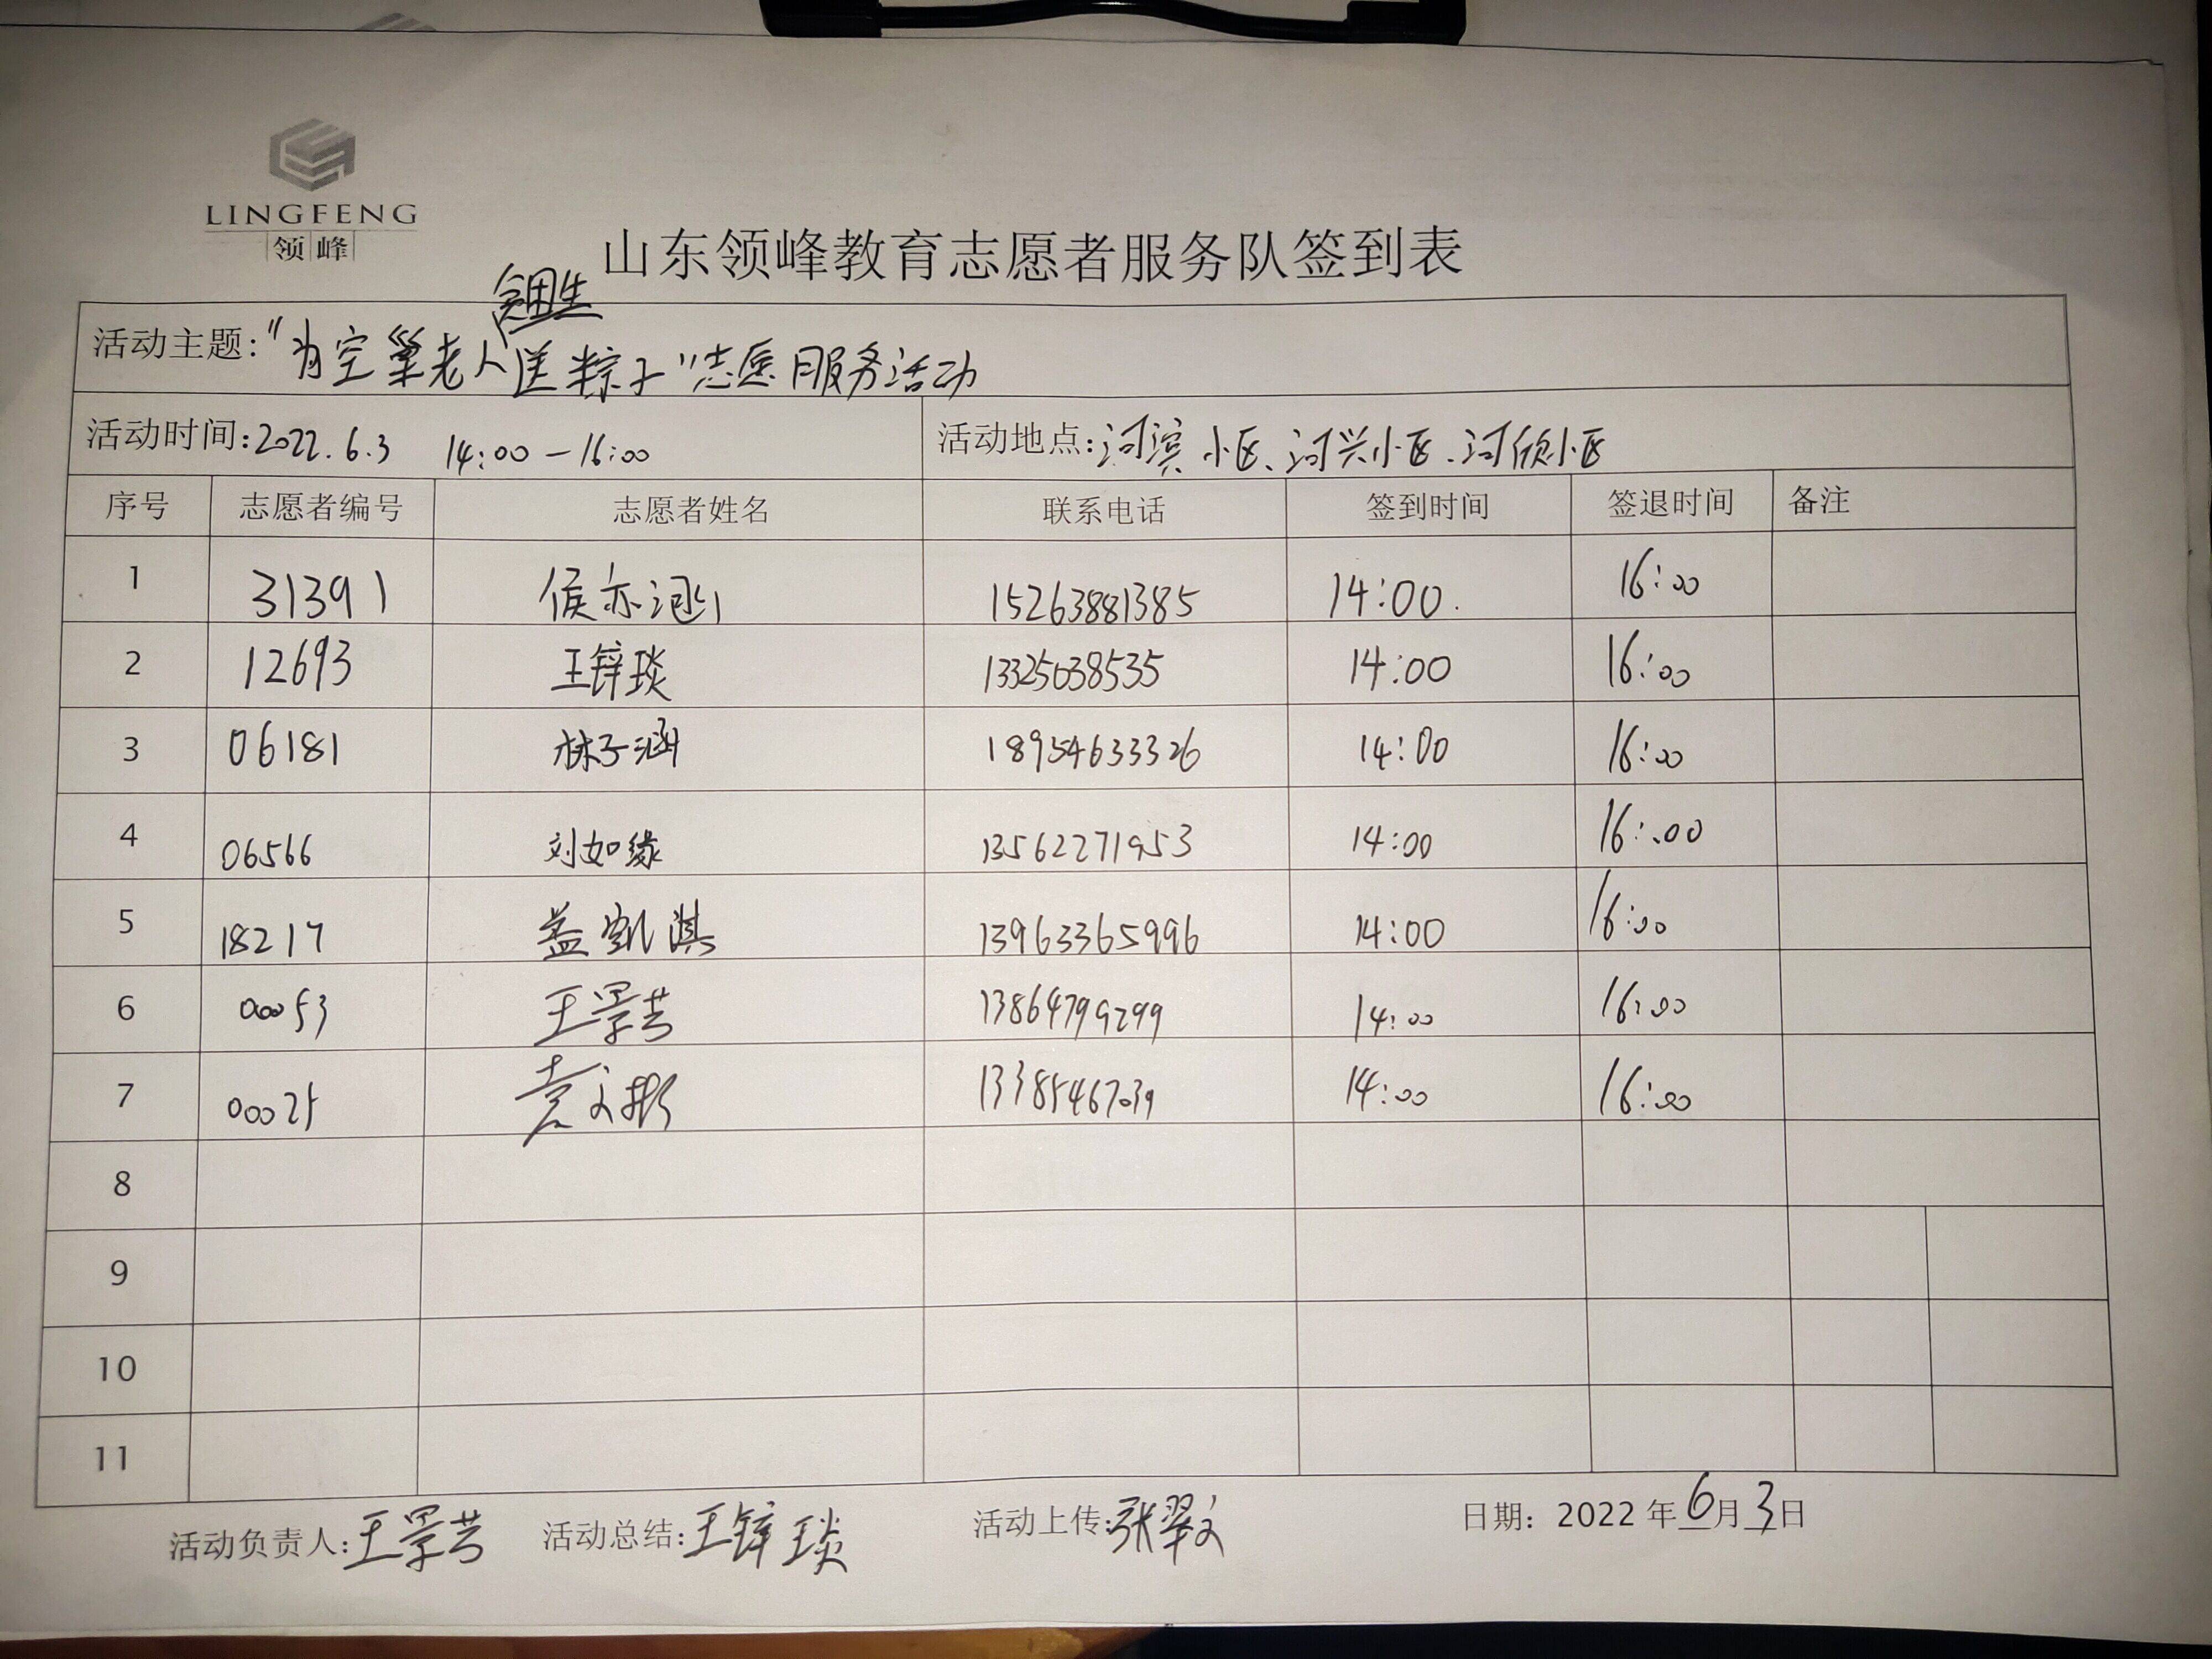 LINGFENG
领峰
山东领峰教育志愿者服务队签到表
活动主题:"为空巢老人送粽子"志愿服务活动
活动时间:2022.6.3 14:00-16:00 活动地点:河滨小区、河兴小区、河欣小区
序号 志愿者编号 志愿者姓名 联系电话 签到时间 签退时间 备注
1 31391 侯亦涵 15263881385 14:00. 16:00
2 12693 王锌琰 13325038535 14:00 16:00
3 06181 林子涵 18954633326 14:00 16:00
4 06566 刘如缘 13562271953 14:00 16:00
5 18217 盖凯淇 13963365996 14:00 16:00
6 00053 王景芸 13864799299 14:00 16:00
7 00025 袁文彬 13385467039 14:00 16:00
8
9
10
11
活动负责人:王景芸 活动总结:王锌琰 活动上传:张翠文 日期：2022年6月3日